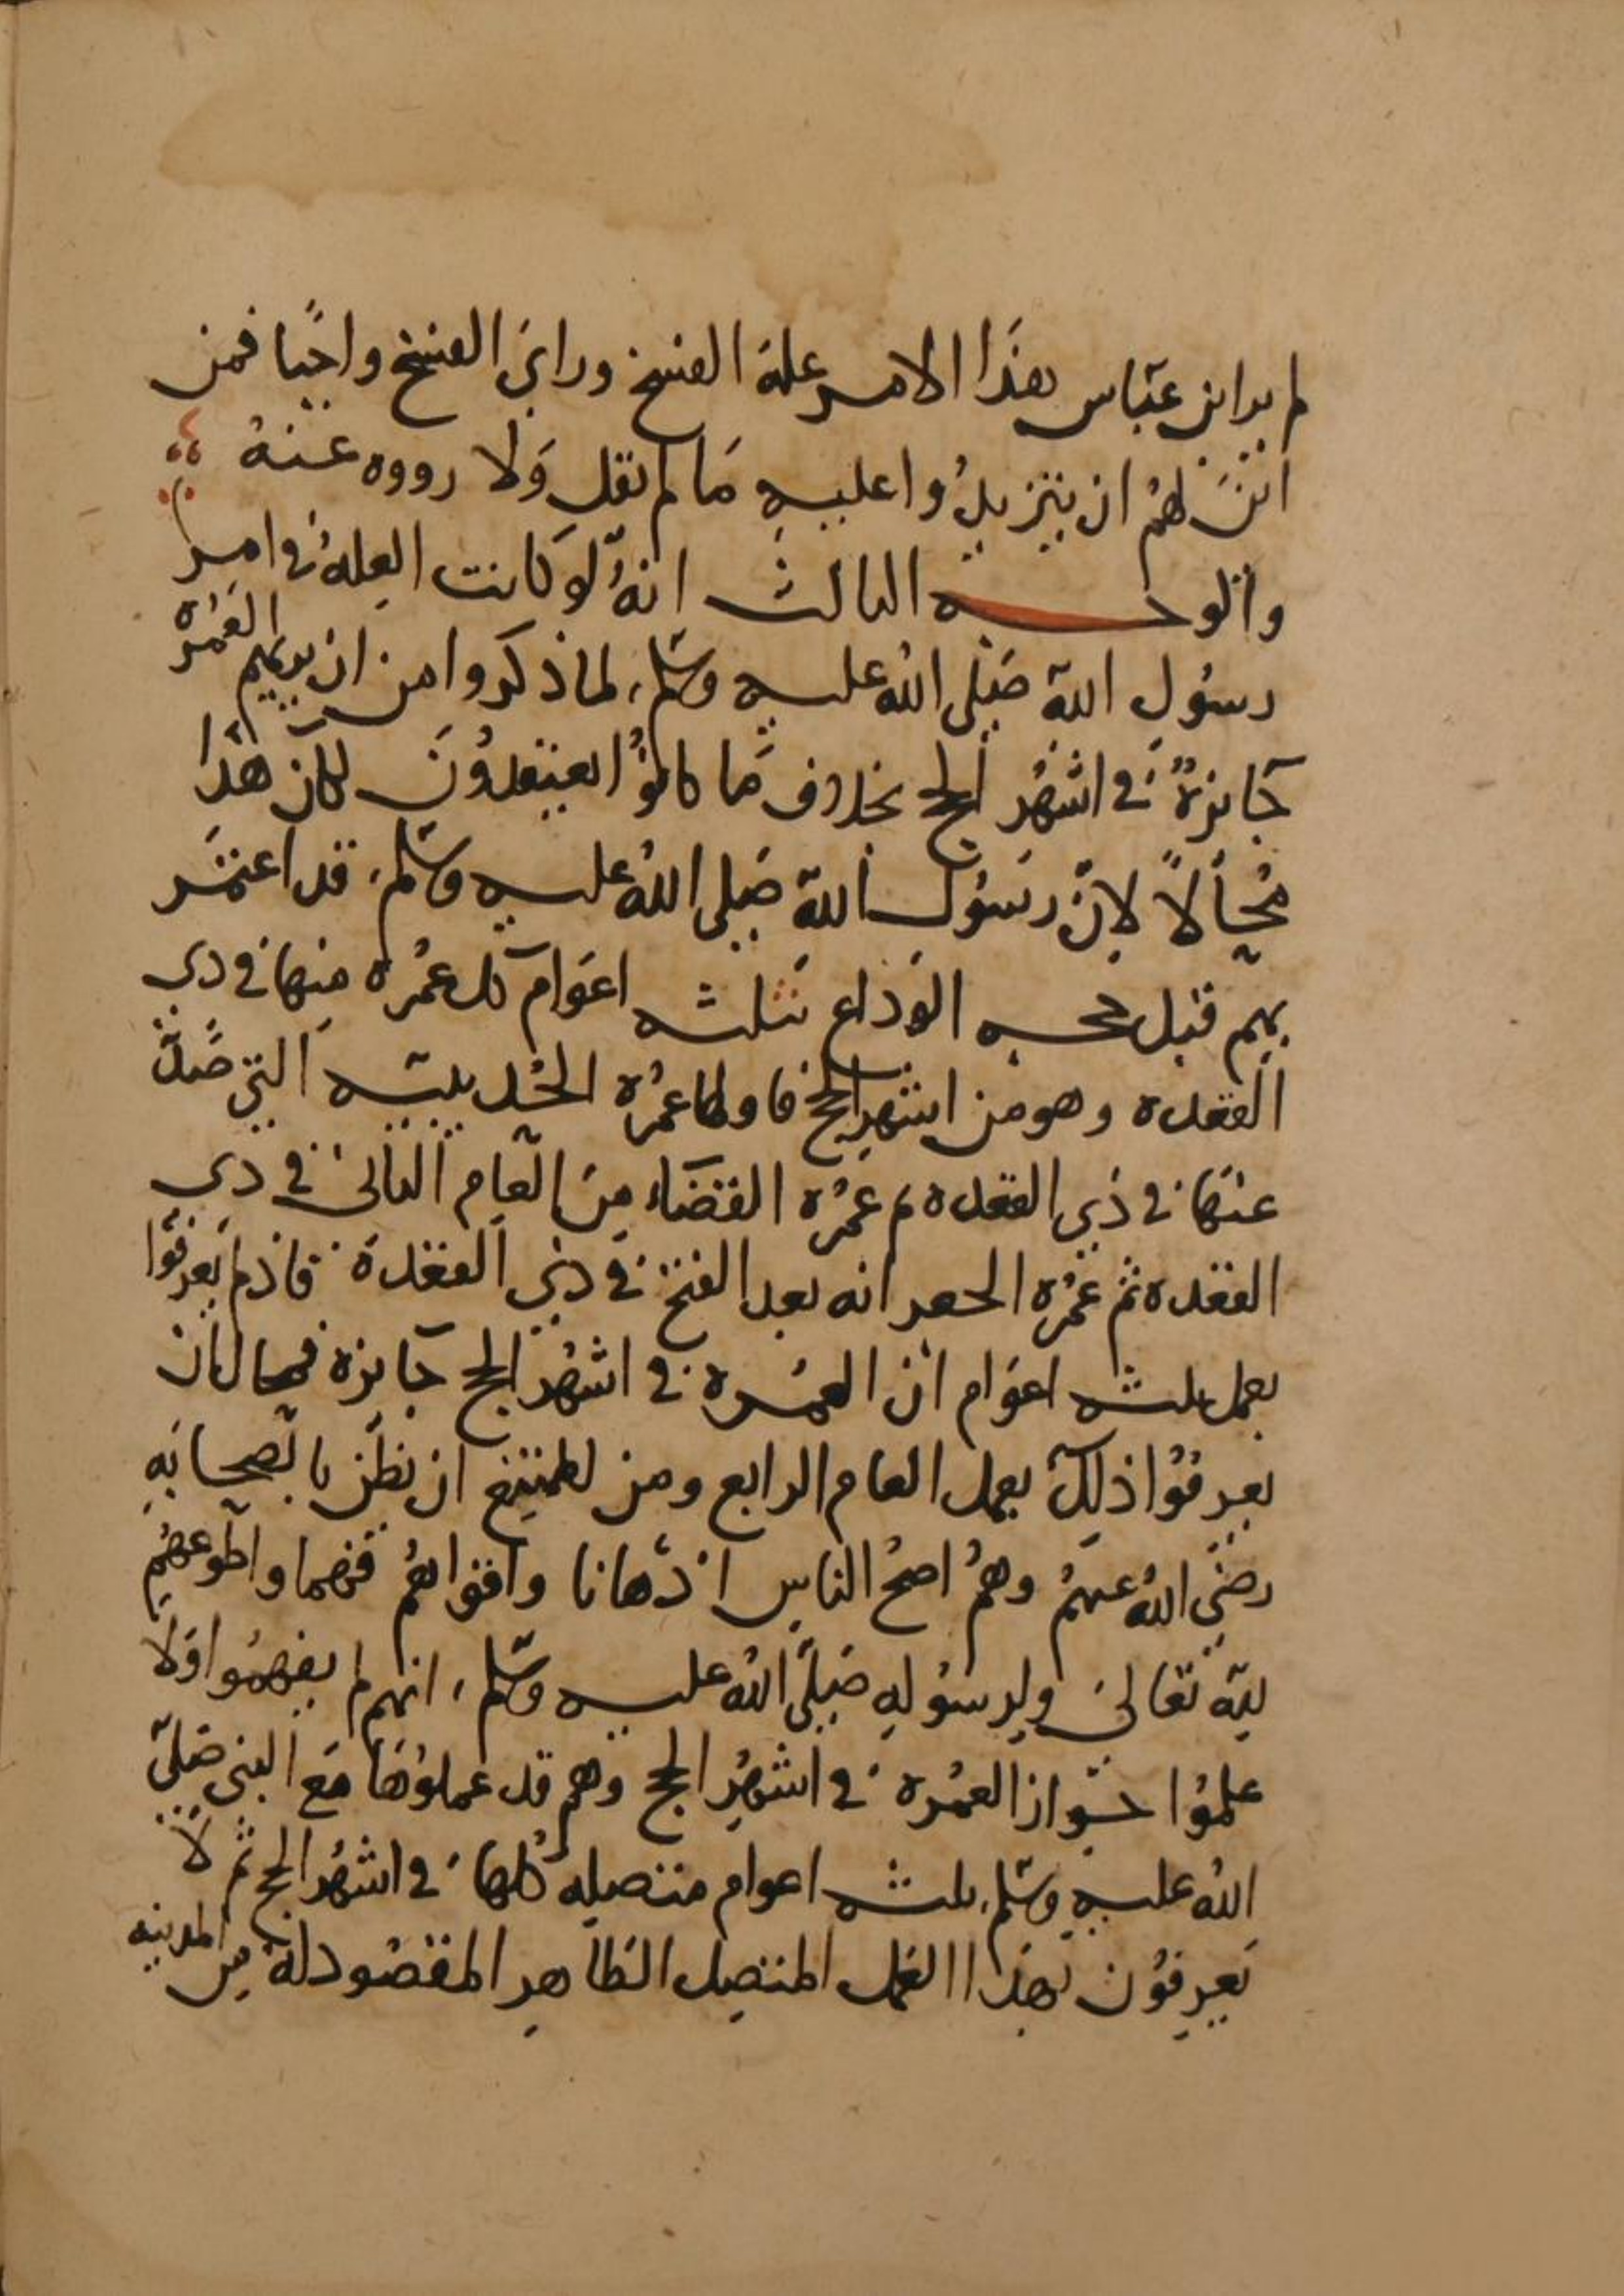 لم ير ابن عباس هذا الامر علة الفسخ وراى الفسخ واجبا فمن
اين لهم ان يتزيدوا عليه ما لم يقل ولا رووه عنه
والوجه الثالث انه لو كانت العلة في امر
رسول الله صلى الله عليه وسلم لما ذكروا من ان يريهم العمرة
جايزة في اشهر الحج بخلاف ما كانوا يعتقدون لكان هذا
محالا لان رسول الله صلى الله عليه وسلم قد اعتمر
بهم قبل حجه الوداع بثلثه اعوام كل عمرة منها في ذي
القعده وهو من اشهر الحج فاولها عمرة الحديبيه التي صد
عنها في ذي القعده ثم عمرة القضاء من العام الثاني في ذي
القعده ثم عمرة الجعرانه بعد الفتح في ذي القعدة فاذ لم يعرفوا
بعمل ثلثه اعوام ان العمره في اشهر الحج جايزة فمحال ان
يعرفوا ذلك بعمل العام الرابع ومن الممتنع ان يظن بالصحابه
رضي الله عنهم وهم اصح الناس اذهانا وافواهم فهما واطوعهم
لله تعالى ولرسوله صلى الله عليه وسلم انهم لم يفهموا ولا
علموا جواز العمره في اشهر الحج وهم قد عملوها مع النبي صلى
الله عليه وسلم ثلثه اعوام متصله كلها في اشهر الحج ثم لا
يعرفون بهذا العمل المتصل الظاهر المقصود له من المدينه